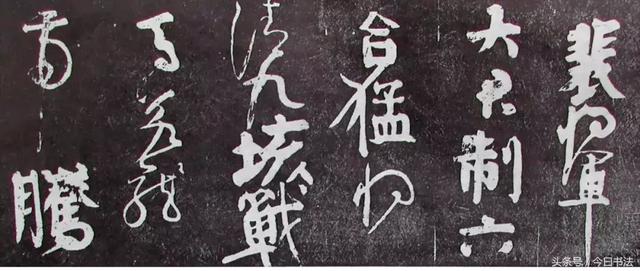 裴將軍
大君制六
合猛將
清九垓戰
馬若龍
虎騰
头条号 / 今日书法